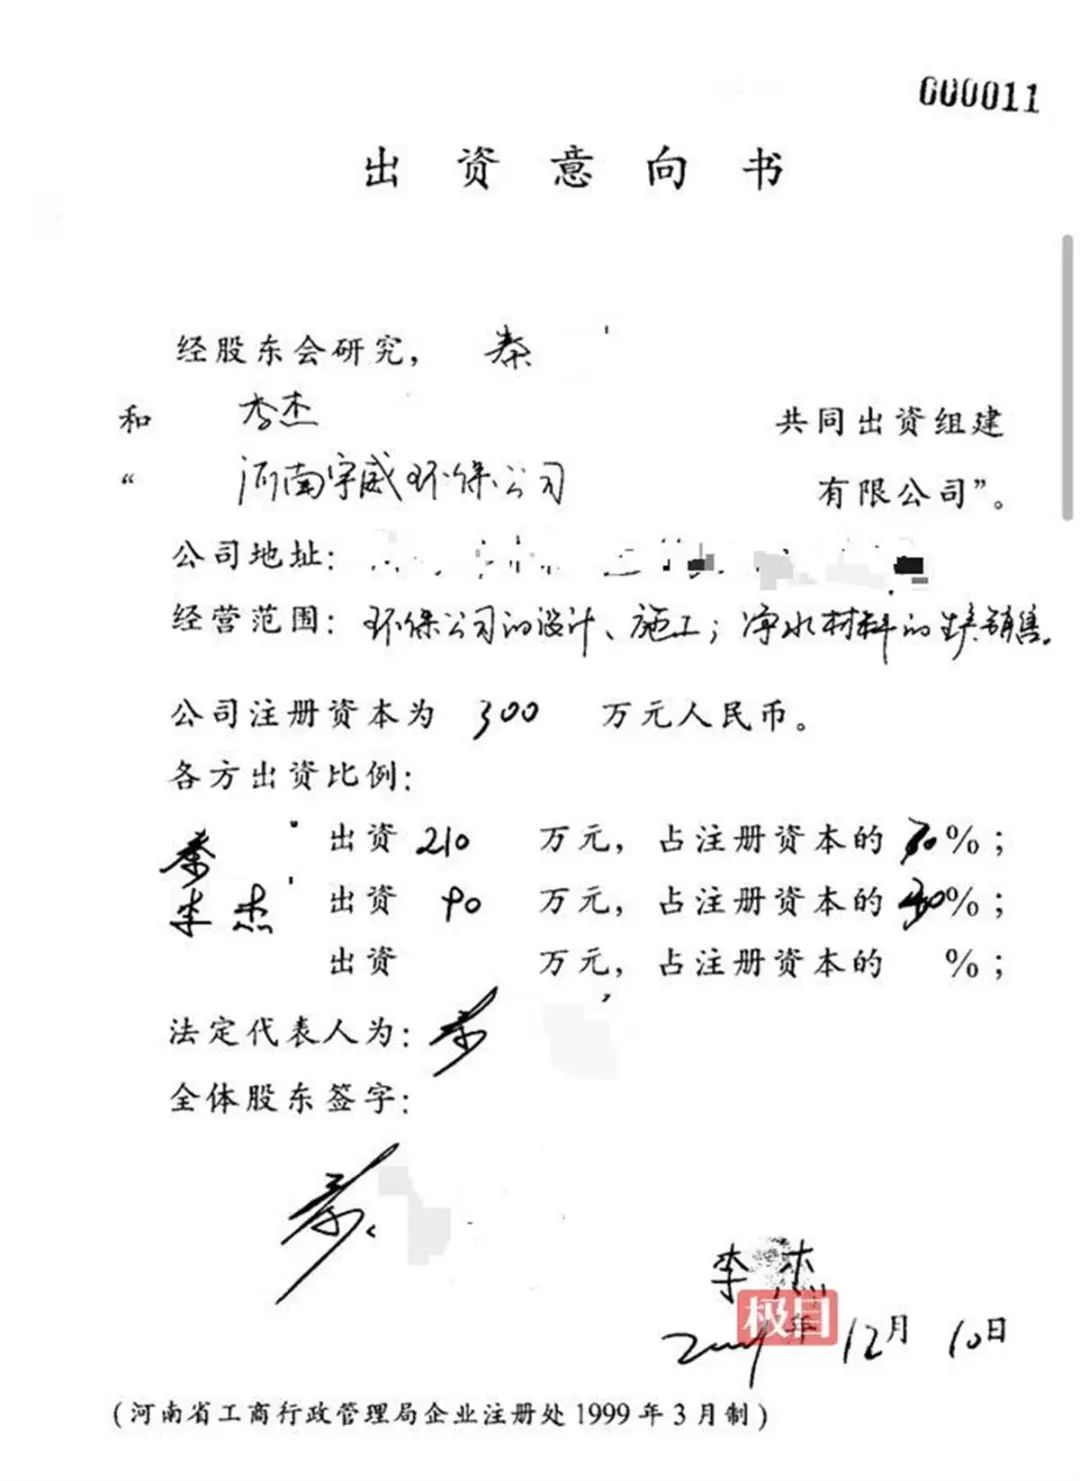 000011
出资意向书
经股东会研究， 秦
和 李杰 共同出资组建
“ 河南宇威环保公司 有限公司”。
公司地址：
经营范围：环保公司的设计、施工；净水材料的生产销售。
公司注册资本为 300 万元人民币。
各方出资比例：
秦 出资 210 万元，占注册资本的 70%；
李杰 出资 90 万元，占注册资本的 30%；
出资 万元，占注册资本的 %；
法定代表人为：秦
全体股东签字：
秦
李杰
极目
年 12月 10日
（河南省工商行政管理局企业注册处1999年3月制）